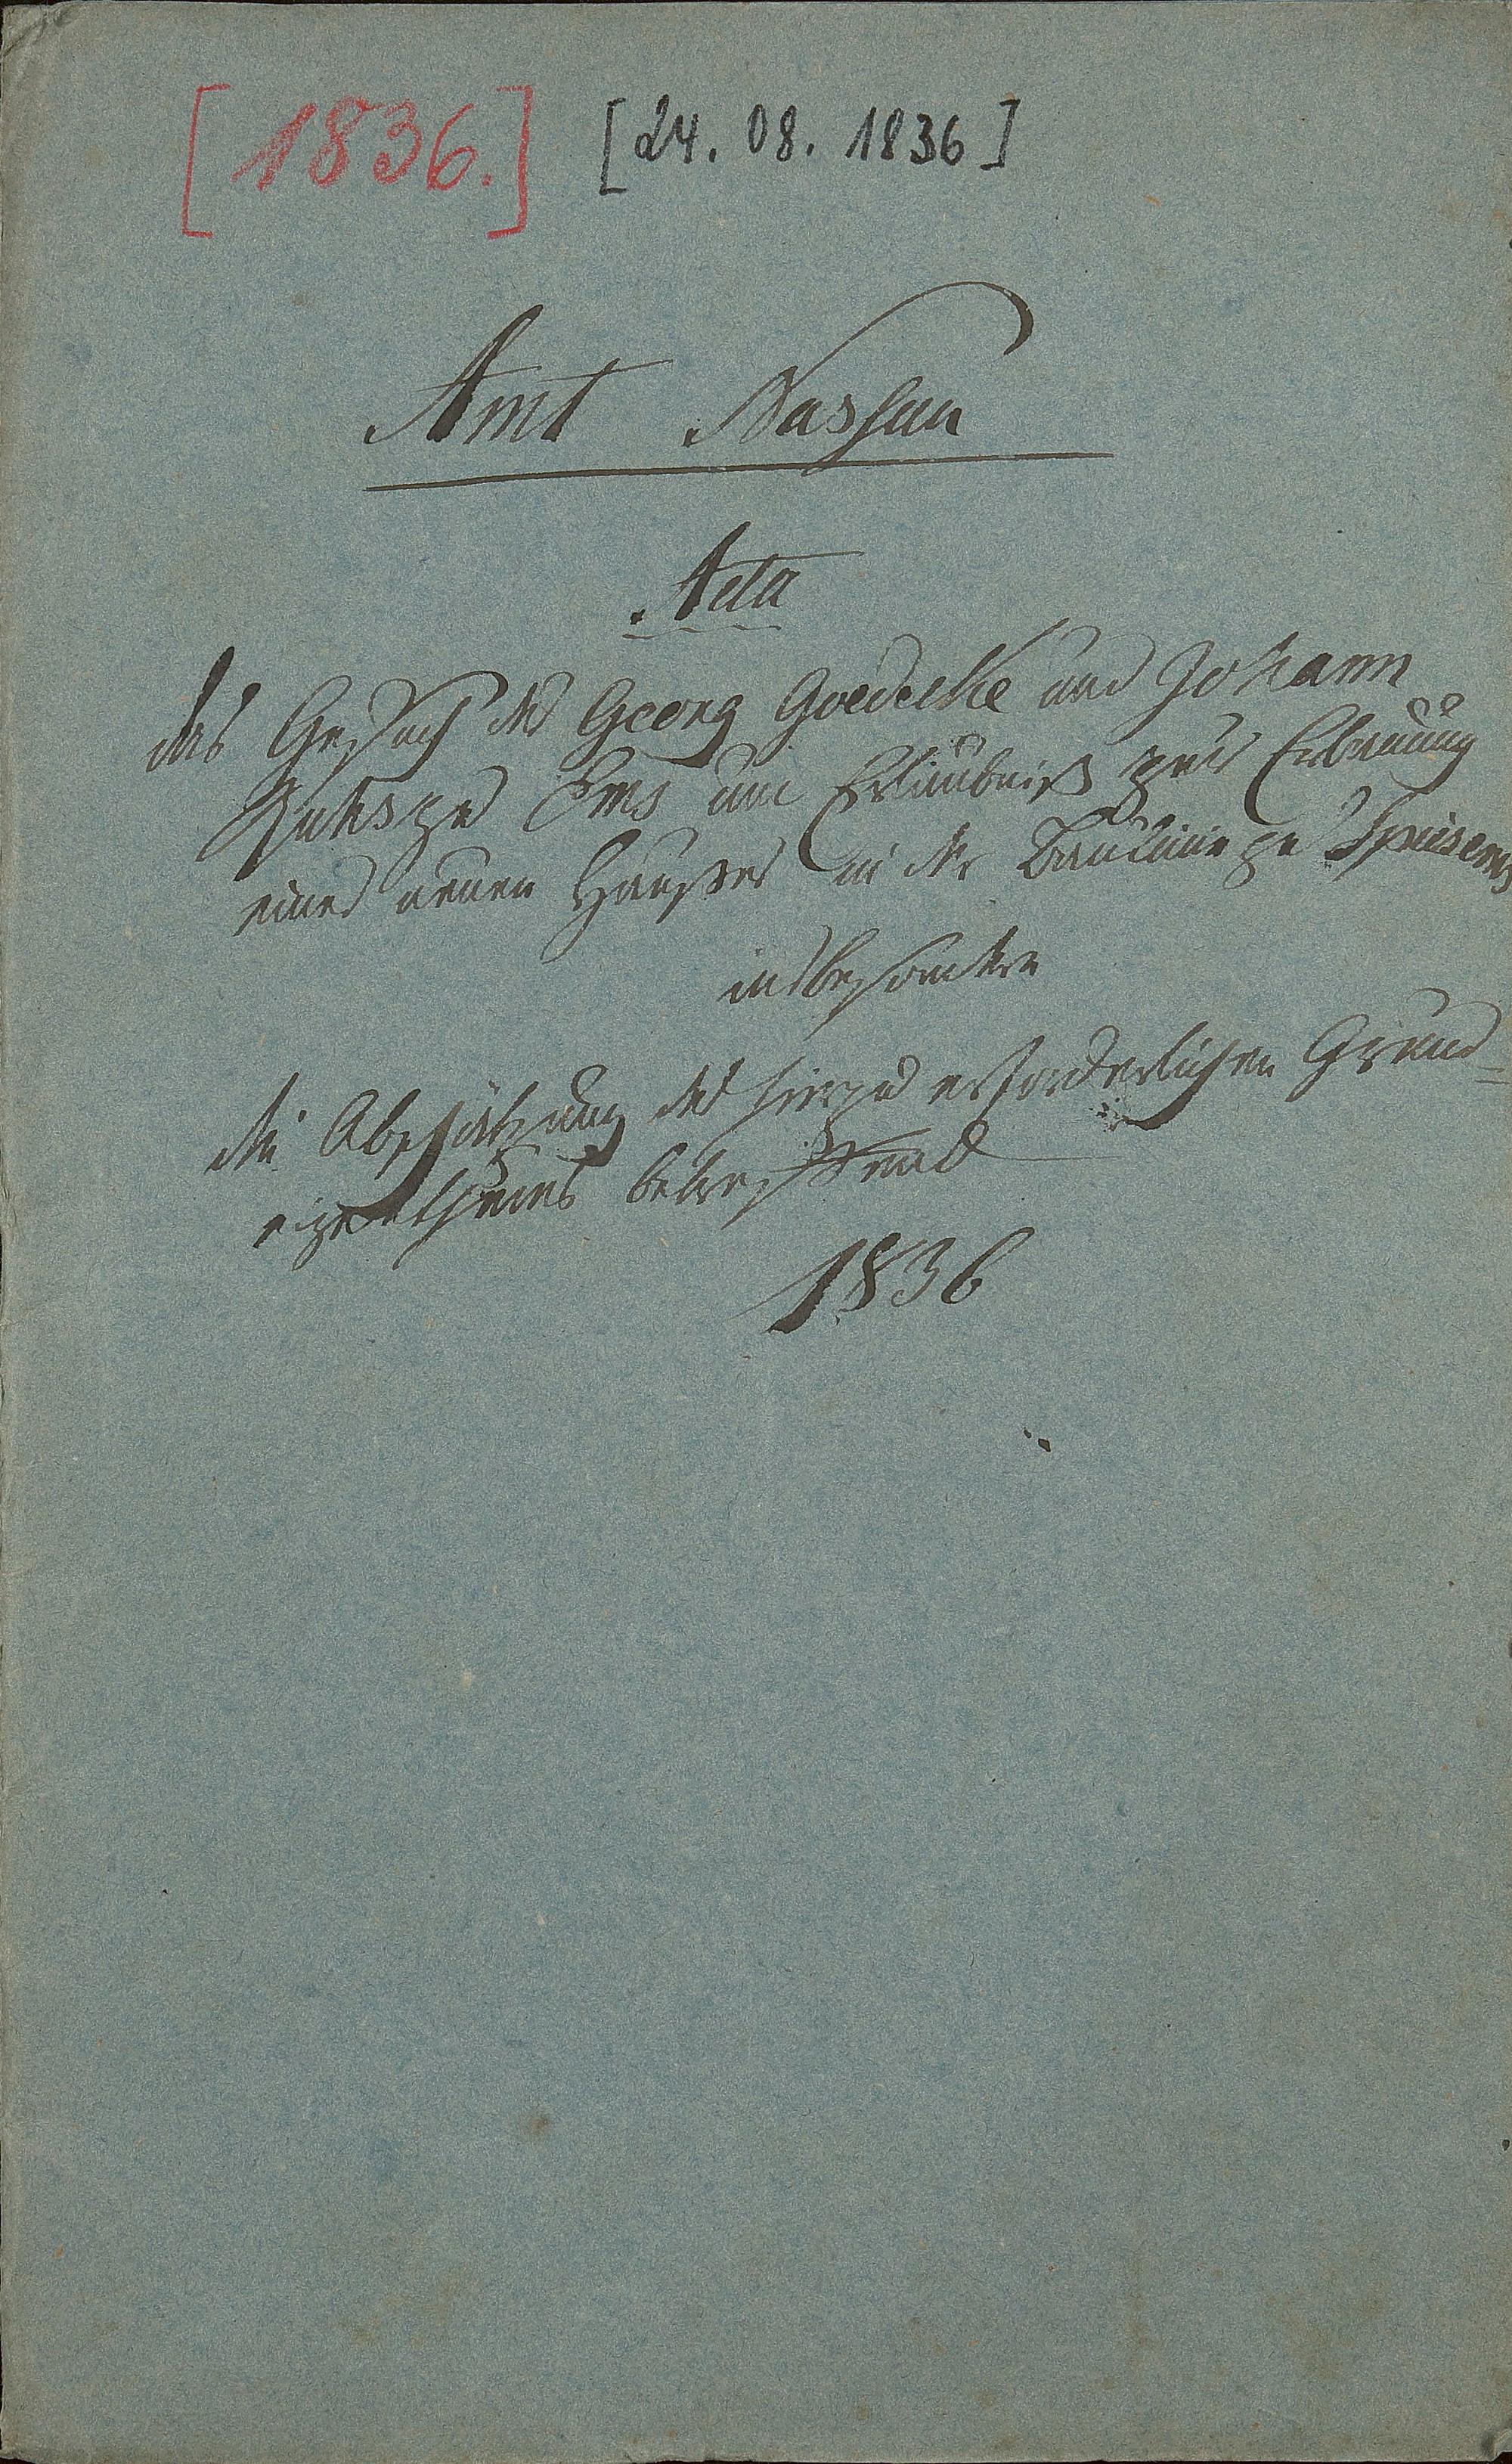 [1836.] [24. 08. 1836]
Amt Nassau
Acta
das Gesuch des Georg Goedecke und Johann
zu Ems um Erlaubniß zur Erbauung
eines neuen Haußes in der Baulinie zu Spiesems
insbesondere
die Abschätzung des hierzu erforderlichen Grund-
eigenthums betreffend
1836